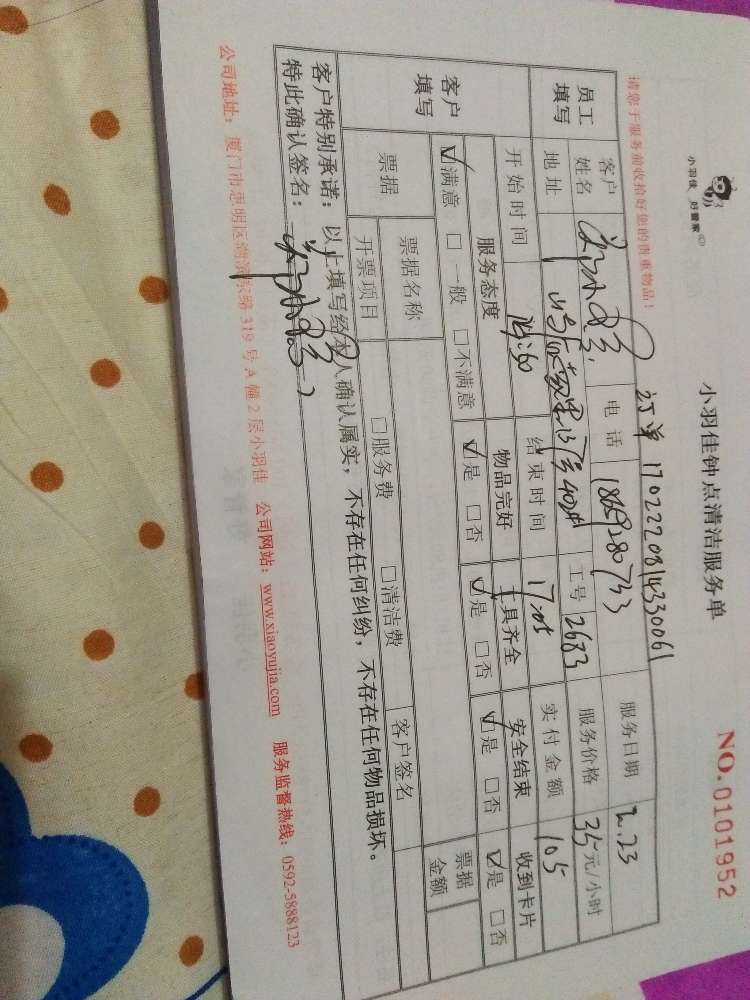 小羽佳 好管家
小羽佳钟点清洁服务单
NO.0101952
请您于服务前收拾好您的贵重物品！
订单 1702220814330061
员工填写
客户姓名
电话 18659280733
服务日期 2.23
地址
工号 2683
服务价格 35元/小时
开始时间
结束时间 17:05
实付金额 105
客户填写
服务态度 物品完好 工具齐全 安全结束 收到卡片
☑满意 □一般 □不满意 ☑是 □否 ☑是 □否 ☑是 □否 ☑是 □否
票据
票据名称 客户签名 票据金额
开票项目 □服务费 □清洁费
客户特别承诺：以上填写经本人确认属实，不存在任何纠纷，不存在任何物品损坏。
特此确认签名：
公司地址：厦门市思明区湖滨东路319号A幢2层小羽佳 公司网站：www.xiaoyujia.com 服务监督热线：0592-5888123